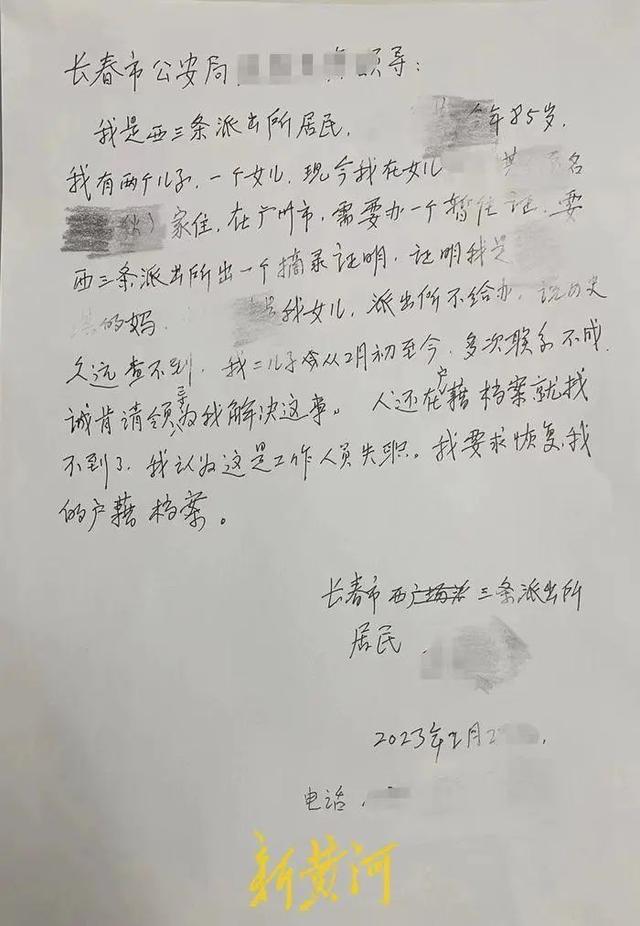 长春市公安局 领导：
我是西三条派出所居民， 今年85岁，
我有两个儿子，一个女儿，现今我在女儿
家住，在广州市，需要办一个暂住证，要
西三条派出所出一个摘录证明，证明我是
的妈， 是我女儿，派出所不给办，说历史
久远查不到，我二儿子从2月初至今，多次联系不成
诚肯请领导为我解决这事。人还在户藉档案就找
不到了，我认为这是工作人员失职。我要求恢复我
的户藉档案。
长春市西三条派出所
居民
2023年2月2
电话
新黄河